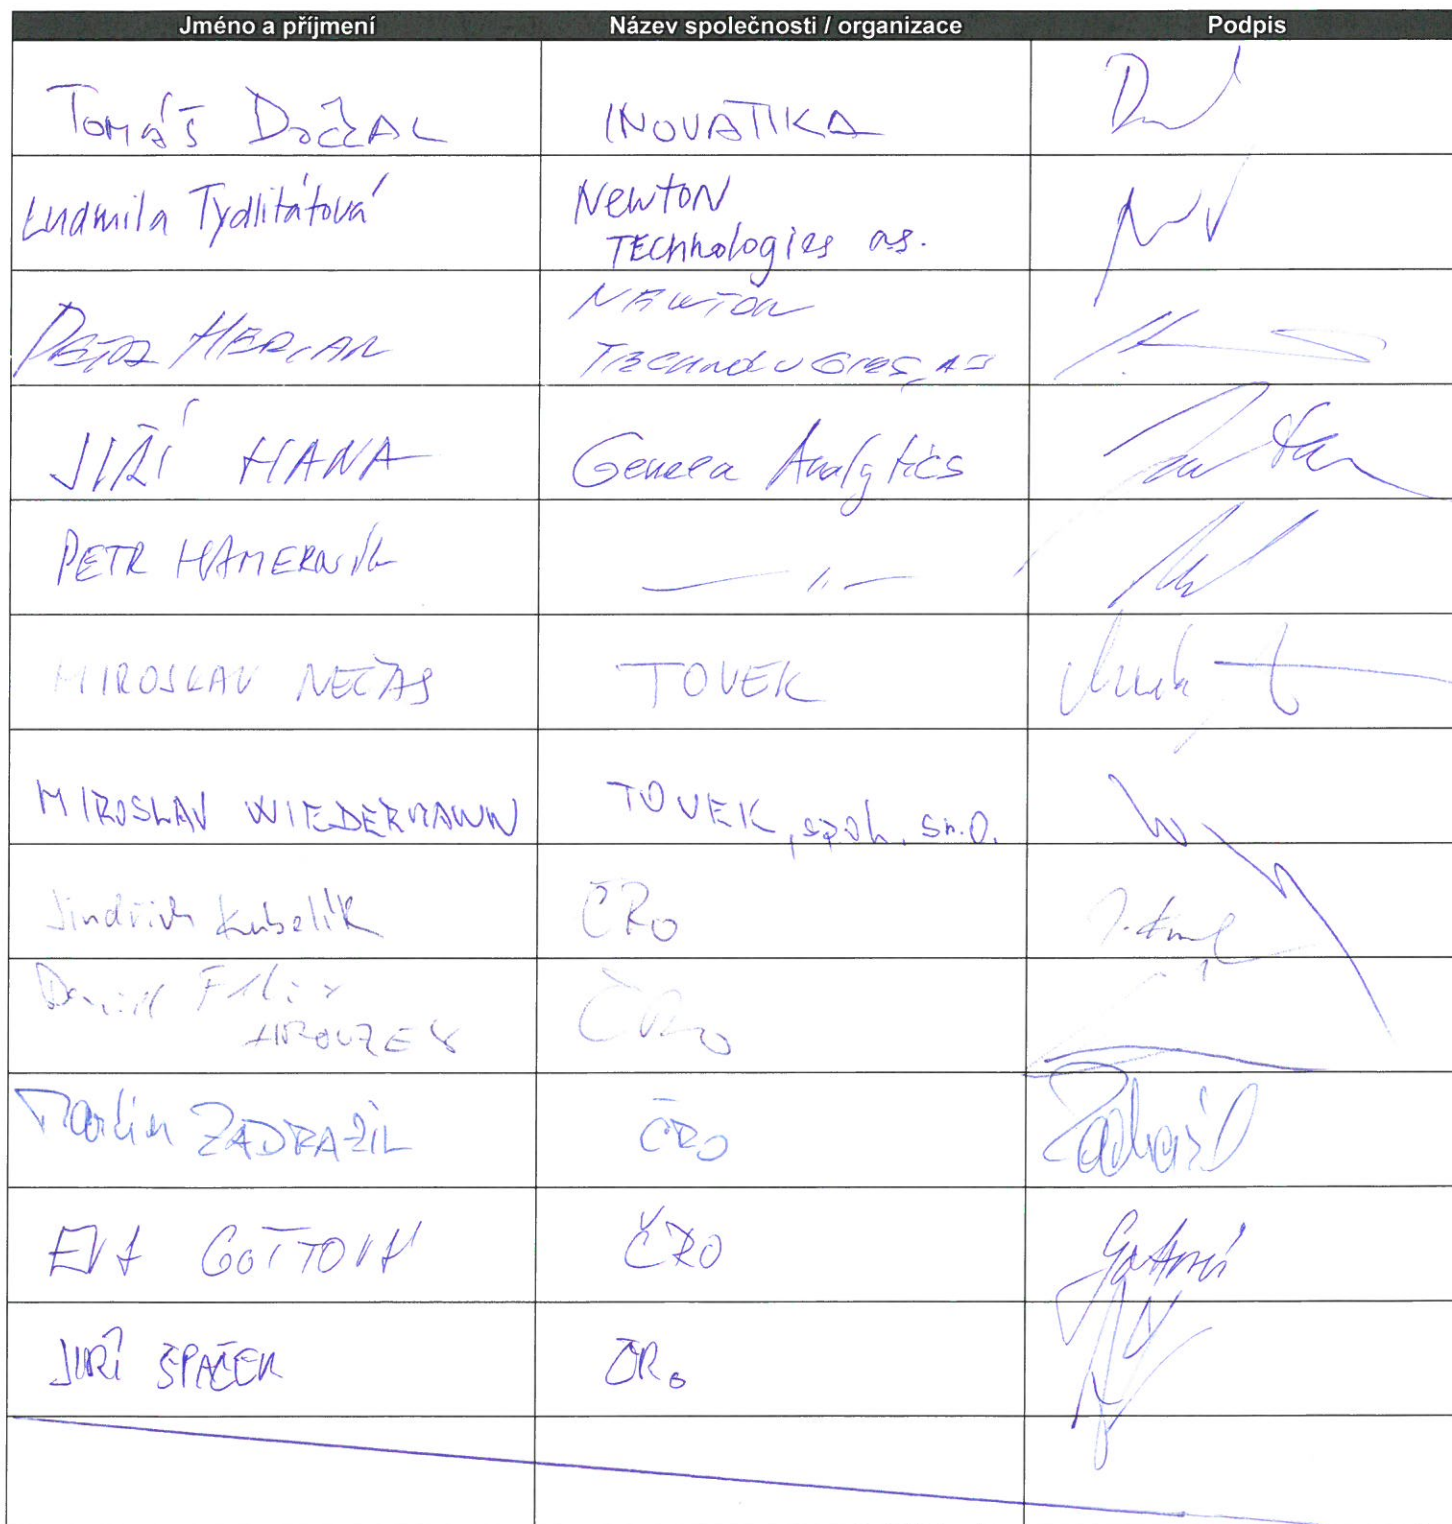 Jméno a příjmení Název společnosti / organizace Podpis
TOMÁŠ DOČKAL INOVATIKA
Ludmila Tydlitátová Newton
TEChnologies as.
PETR HERIAN NEWTON
TECHNOLOGIES, AS
JIŘÍ HANA Geneea Analytics
PETR HAMERNÍK — 〃 —
MIROSLAV NEČAS TOVEK
MIROSLAV WIEDERMANN TOVEK, spol. s r.o.
Jindřich Kubelík ČRo
David Filip ČRo
Martin ZADRAŽIL ČRO
EVA GOTTOVÁ ČRO
JIŘÍ ŠPAČEK ČRo